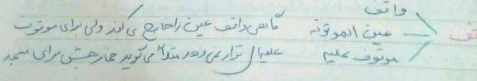 واقف
وقف عین الموقوفه گاهی واقف عین را خارج می کند ولی برای موقوف
موقوف علیهم علیهم قرار نمی دهد مثلا می گوید مخارجش برای مسجد